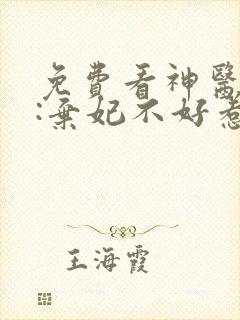 免費看神醫
:棄妃不好惹
王海霞